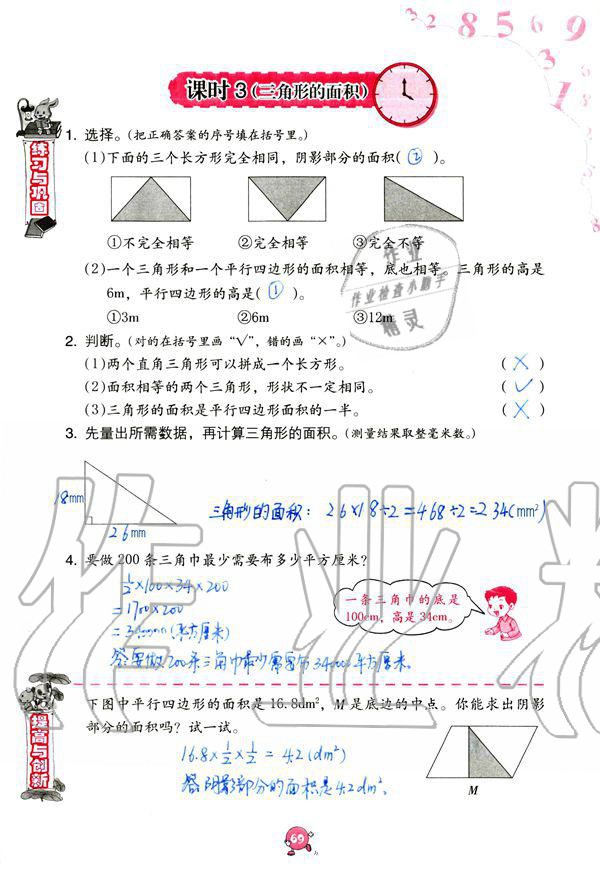 3 2 8 5 6 9
3
1
8
课时 3(三角形的面积)
练习与巩固
1. 选择。(把正确答案的序号填在括号里。)
(1)下面的三个长方形完全相同，阴影部分的面积( ② )。
①不完全相等 ②完全相等 ③完全不等
(2)一个三角形和一个平行四边形的面积相等，底也相等。三角形的高是
6m，平行四边形的高是( ① )。
①3m ②6m ③12m
作业
作业检查小助手
精灵
2. 判断。(对的在括号里画“√”，错的画“×”。)
(1)两个直角三角形可以拼成一个长方形。 ( × )
(2)面积相等的两个三角形，形状不一定相同。 ( √ )
(3)三角形的面积是平行四边形面积的一半。 ( × )
3. 先量出所需数据，再计算三角形的面积。(测量结果取整毫米数。)
18mm
26mm
三角形的面积：26×18÷2=468÷2=234(mm²)
4. 要做200条三角巾最少需要布多少平方厘米？
一条三角巾的底是
100cm，高是34cm。
½×100×34×200
=1700×200
=340000(平方厘米)
答：要做200条三角巾最少需要布340000平方厘米。
提高与创新
下图中平行四边形的面积是16.8dm²，M是底边的中点。你能求出阴影
部分的面积吗？试一试。
16.8×½×½=4.2(dm²)
答：阴影部分的面积是4.2dm²。
M
69
作业精灵